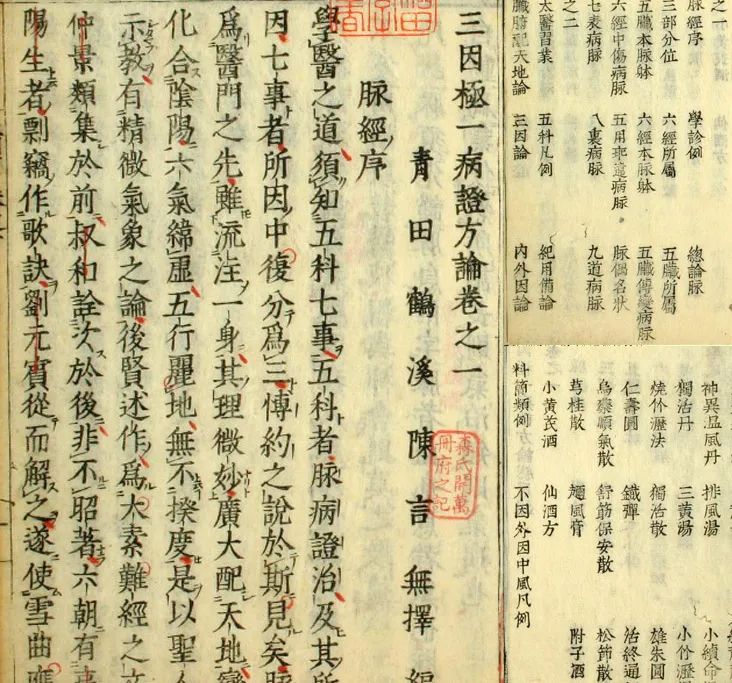 三因極一病證方論卷之一
青田鶴溪陳言無擇編
脉經序
學醫之道須知五科七事五科者脉病證治及其所
因七事者所因中復分爲三博約之說於斯見矣
爲醫門之先雖流注一身其理微妙廣大配天地
化合陰陽六氣緯虛五行麗地無不揆度是以聖人
示教有精微氣象之論後賢述作爲太素難經之文
仲景類集於前叔和詮次於後非不昭著六朝有
陽生者剽竊作歌訣劉元賓從而解之遂使雪曲應
森氏開萬
冊府之記
之一
脉經序 學診例 總論脉
三部分位 六經所屬 五臟所屬
五臟本脉躰 六經本脉躰 五臟傳變病脉
六經中傷病脉 五用乖違病脉 脉偶名狀
七表病脉 八裏病脉 九道病脉
之二
太醫習業 五科凡例 紀用備論
臟腑配天地論 三因論 內外因論
神異温風丹 排風湯 小續命
獨活丹 三黃湯 小竹瀝
燒竹瀝法 獨活散 雄朱圓
仁壽圓 鐵彈 活絡通
烏藥順氣散 舒筋保安散 松節散
桂散 風膏 附子酒
小黃芪酒 仙酒方
料簡類例 不因外因中風凡例